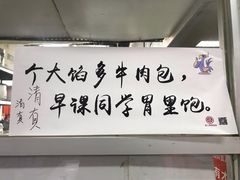 个大馅多牛肉包，
早课同学胃里饱。
清真
清真